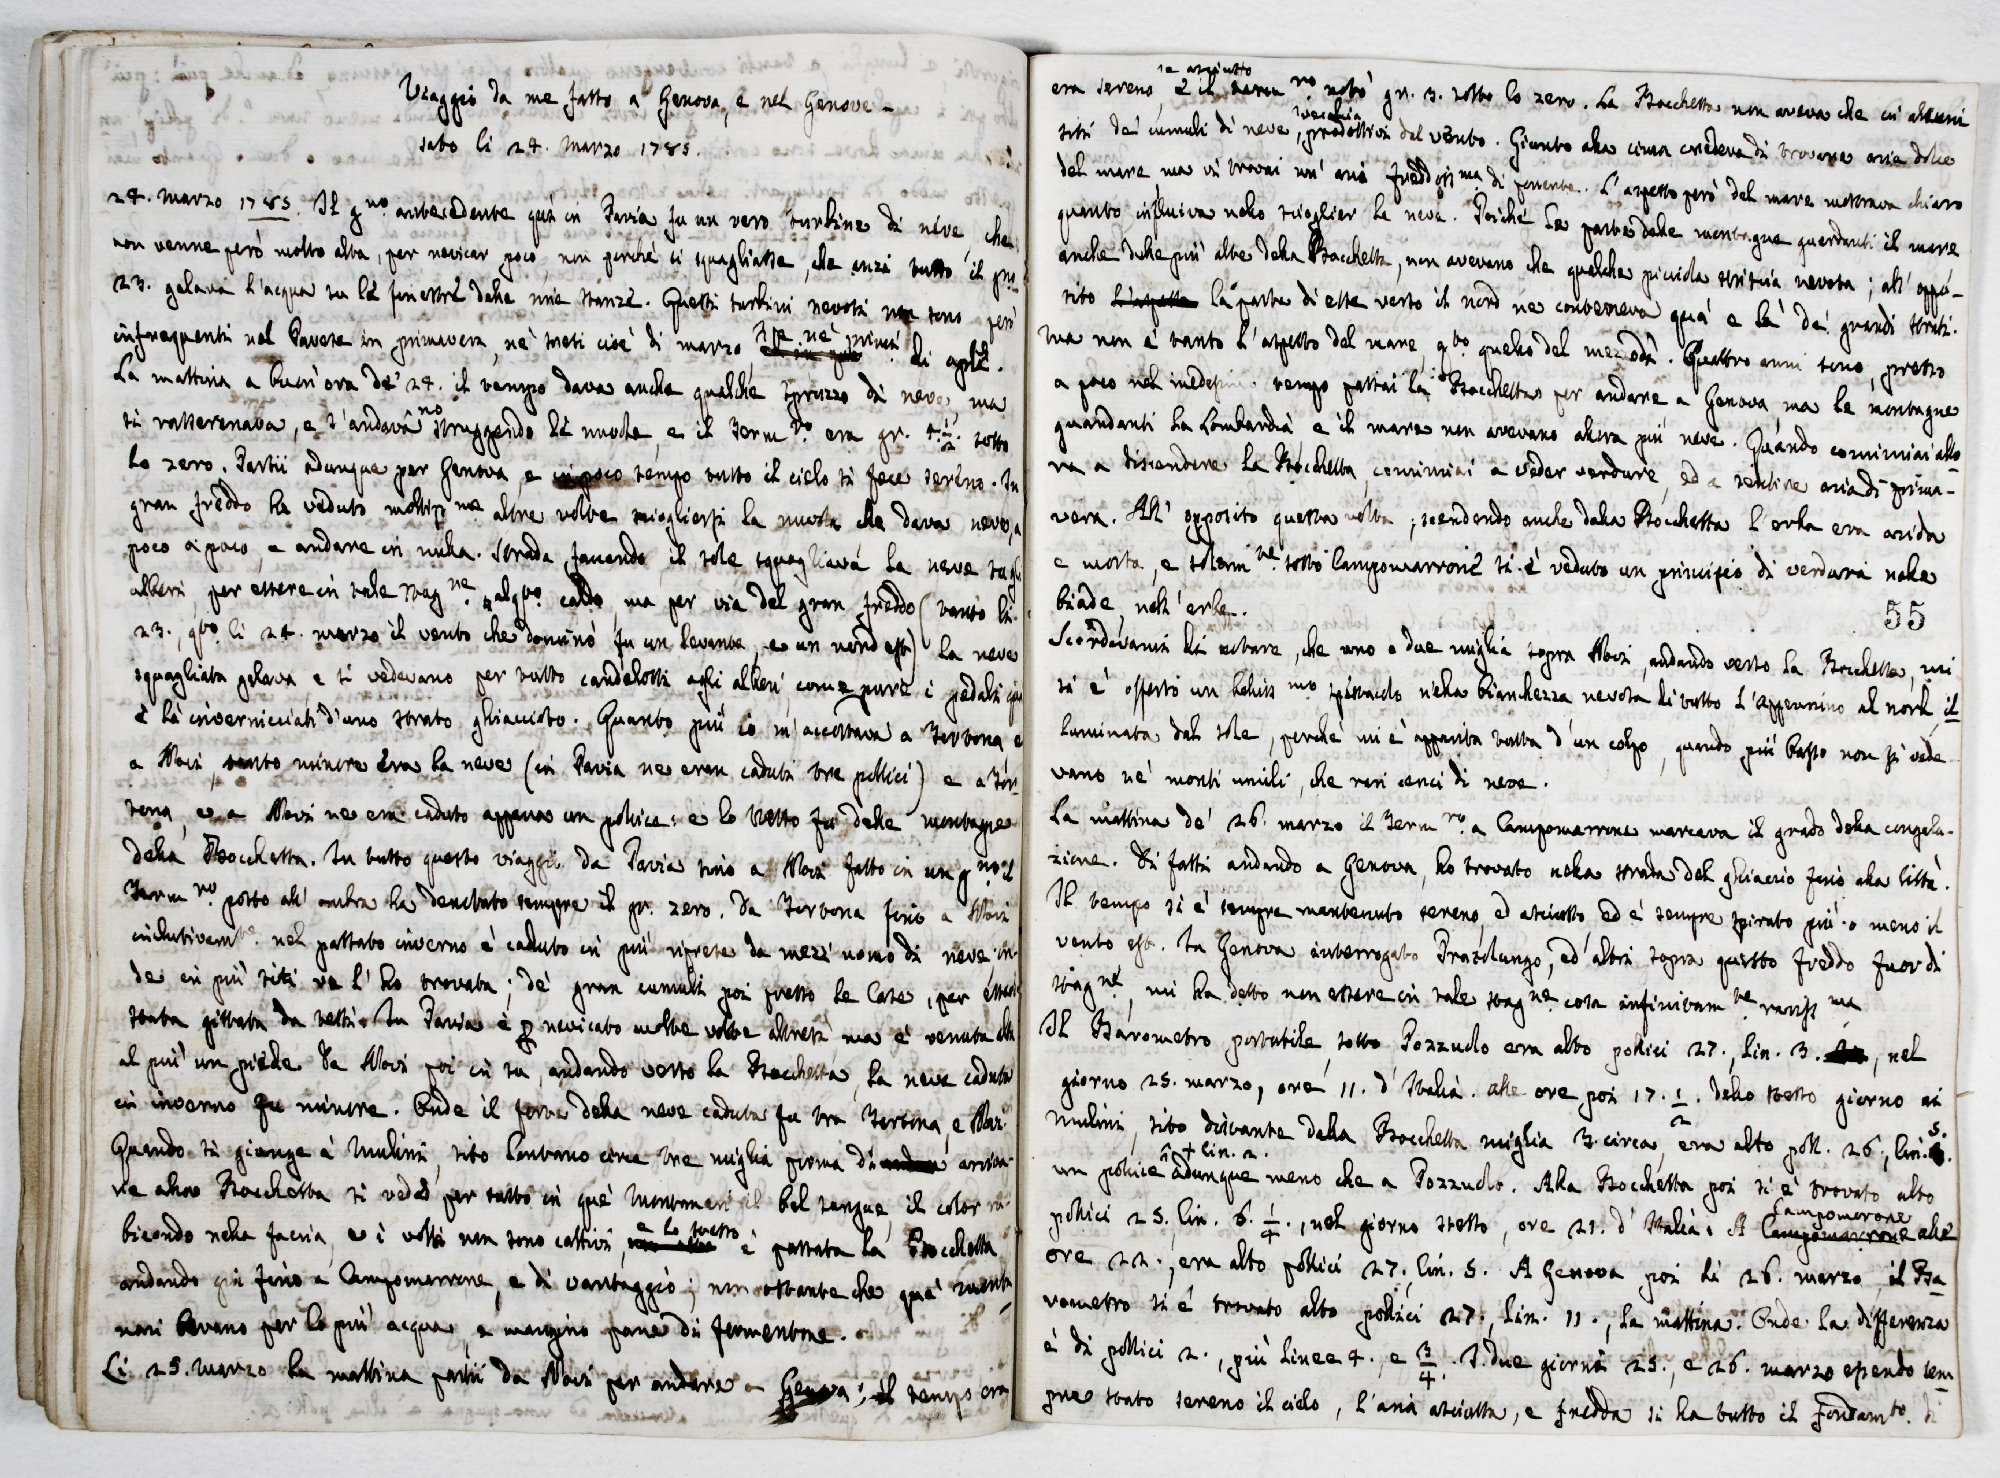 Viaggio da me fatto a Genova, e nel Genove-
sato li 24. Marzo 1785.
24. Marzo 1785. Il gno antecedente quà in Pavia fu un vero turbine di neve, che
non venne però molto alta, per nevicar poco, non perché si squagliasse, che anzi tutto il gno
23. gelava l'acqua su le finestre delle mie stanze. Questi turbini nevosi non sono però
infrequenti nel Pavese in primavera, né mesi cioè di marzo, né primi di aple.
La mattina a buon'ora de' 24. il tempo dava anche qualche spruzzo di neve, ma
si rasserenava, e s'andavano struggendo le nuvole, e il Termro era gr. 4. 1/2. sotto
lo zero. Partii adunque per Genova, e in poco tempo tutto il cielo si fece sereno. In
gran freddo ha veduto moltissme altre volte sciogliersi la nuvola che dava neve, a
poco a poco, e andare in nulla. Strada facendo il sole squagliava la neve sugli
alberi, per essere in tale stagne alqto caldo, ma per via del gran freddo (tanto li
23., qto li 24. marzo il vento che dominò fu un levante, e un nord est) la neve
squagliata gelava e si vedevano per tutto candelotti agli alberi, come pure i pedali quà
e là inverniciati d'uno strato ghiacciato. Quanto più io m'accostava a Tortona e
a Novi, tanto minore era la neve (in Pavia ne eran caduti tre pollici) e a Tor-
tona, e a Novi ne era caduto appena un pollice: e lo stesso fu delle montagne
della Bocchetta. In tutto questo viaggio da Pavia sino a Novi fatto in un gno il
Termro posto all'ombra ha denotato sempre il gr. zero. Da Tortona fino a Novi
inclusivamte nel passato inverno è caduto in più riprese da mezz'uomo di neve, on-
de in più siti ve l'ho trovata; de' gran cumuli poi presso le Case, per essere
stata gittata da tetti. In Pavia è nevicato molte volte altresì ma è venuta alta
al più un piede. Da Novi poi in su, andando verso la Bocchetta, la neve caduta
in inverno fu minore. Onde il forte della neve caduta fu tra Tortona, e Novi.
Quando si giunge a' Mulini, sito lontano circa tre miglia prima di arriva-
re alla Bocchetta si vede per tutto in que' Montanari il bel sangue, il color ru-
bicondo nella faccia, e i volti non sono cattivi, e lo stesso è passata la Bocchetta
andando giù fino a Campomarrone, e di vantaggio; non ostante che que' monta-
nari bevano per lo più acqua, e mangino pane di formentone.
Li 25. Marzo la mattina partii da Novi per andare a Genova; il tempo era
era sereno, e asciutto e il Termro notò gr. 3. sotto lo zero. La Bocchetta non aveva che in alcuni
siti dei cumuli di neve vecchia, produttivi dal vento. Giunto alla cima credeva di trovare aria dolce
del mare ma vi trovai un'aria freddissma di ponente. L'aspetto però del mare mostrava chiaro
quanto influiva nello scioglier la neve. Poiché la parte delle montagne guardanti il mare
anche delle più alte della Bocchetta, non avevano che qualche picciola striscia nevosa; all'oppo-
sito la parte di esse verso il nord ne conteneva quà e là de' grandi strati.
Ma non è tanto l'aspetto del mare, qto quello del mezzodì. Quattro anni sono, presso
a poco nel medesimo tempo passai la Bocchetta per andare a Genova ma le montagne
guardanti la Lombardia e il mare non avevano allora più neve. Quando cominciai allo-
ra a discendere la Bocchetta cominciai a veder verdure, ed a sentire aria di prima-
vera. All'opposito questa volta, scendendo anche dalla Bocchetta l'erba era arida
e morta, e solamte sotto Campomarrone si è veduto un principio di verdura nelle
biade, nell'erbe.
55
Scordavami di notare, che uno o due miglia sopra Novi, andando verso la Bocchetta, mi
si è offerto un bellissmo spettacolo nella bianchezza nevosa di tutto l'Appennino al nord, il-
luminata dal sole, perché mi è apparita tutta d'un colpo, quando più basso non si vede-
vano né monti umili, che rari cenci di neve.
La mattina de' 26. marzo il Termro a Campomarrone marcava il grado della congela-
zione. Di fatti andando a Genova, ho trovato nella strada del ghiaccio fino alla Città.
Il tempo si è sempre mantenuto sereno, ed asciutto, ed è sempre spirato più o meno il
vento est. In Genova interrogato Pratolungo, ed altri sopra questo freddo fuor di
stagne, mi ha detto non essere in tale stagne cosa infinitamte rarissma
Il Barometro portatile, sotto Pozzuolo era alto pollici 27., lin. 3., nel
giorno 25. marzo, ore 11. d'Italia. Alle ore poi 17. 1/2. dello stesso giorno ai
mulini, sito distante dalla Bocchetta miglia 3. circa, era alto poll. 26., lin. 5.
un pollice + lin. 2. adunque meno che a Pozzuolo. Alla Bocchetta poi si è trovato alto
pollici 25. lin. 6. 1/4., nel giorno stesso, ore 21. d'Italia. A Campomorone alle
ore 22., era alto pollici 27., lin. 5. A Genova poi li 26. marzo, il Ba-
rometro si è trovato alto pollici 27., lin. 11., la mattina. Onde la differenza
è di pollici 2., più linee 4., e 3/4. I due giorni 25., e 26. marzo essendo sem-
pre stato sereno il cielo, l'aria asciutta, e fredda si ha tutto il fondamto di